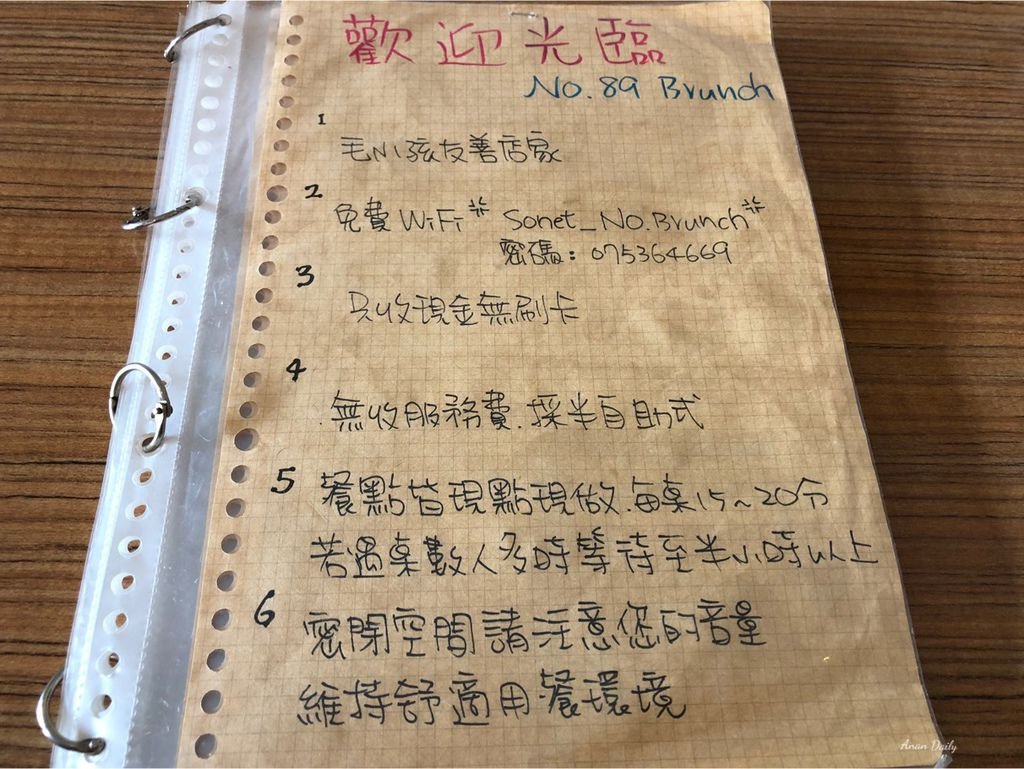 歡迎光臨
No.89 Brunch
1
毛小孩友善店家
2
免費WiFi * Sonet_No.Brunch *
密碼：075364669
3
只收現金無刷卡
4
無收服務費.採半自助式
5
餐點皆現點現做.每桌15~20分
若遇桌數人多時等待至半小時以上
6
密閉空間請注意您的音量
維持舒適用餐環境
Anan Daily